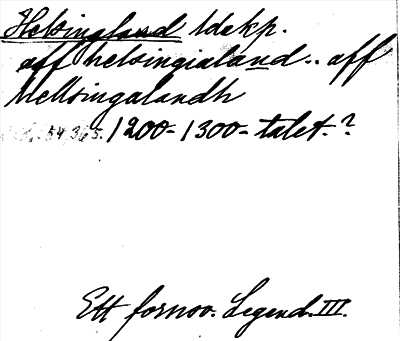 Helsingland ldskp.
aff helsingialand.. aff
Hellsingalandh
54.365. 1200-1300-talet.?
Ett fornsv. Legend. III.